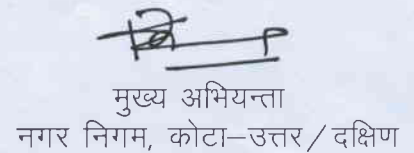 मुख्य अभियन्ता
नगर निगम, कोटा–उत्तर / दक्षिण